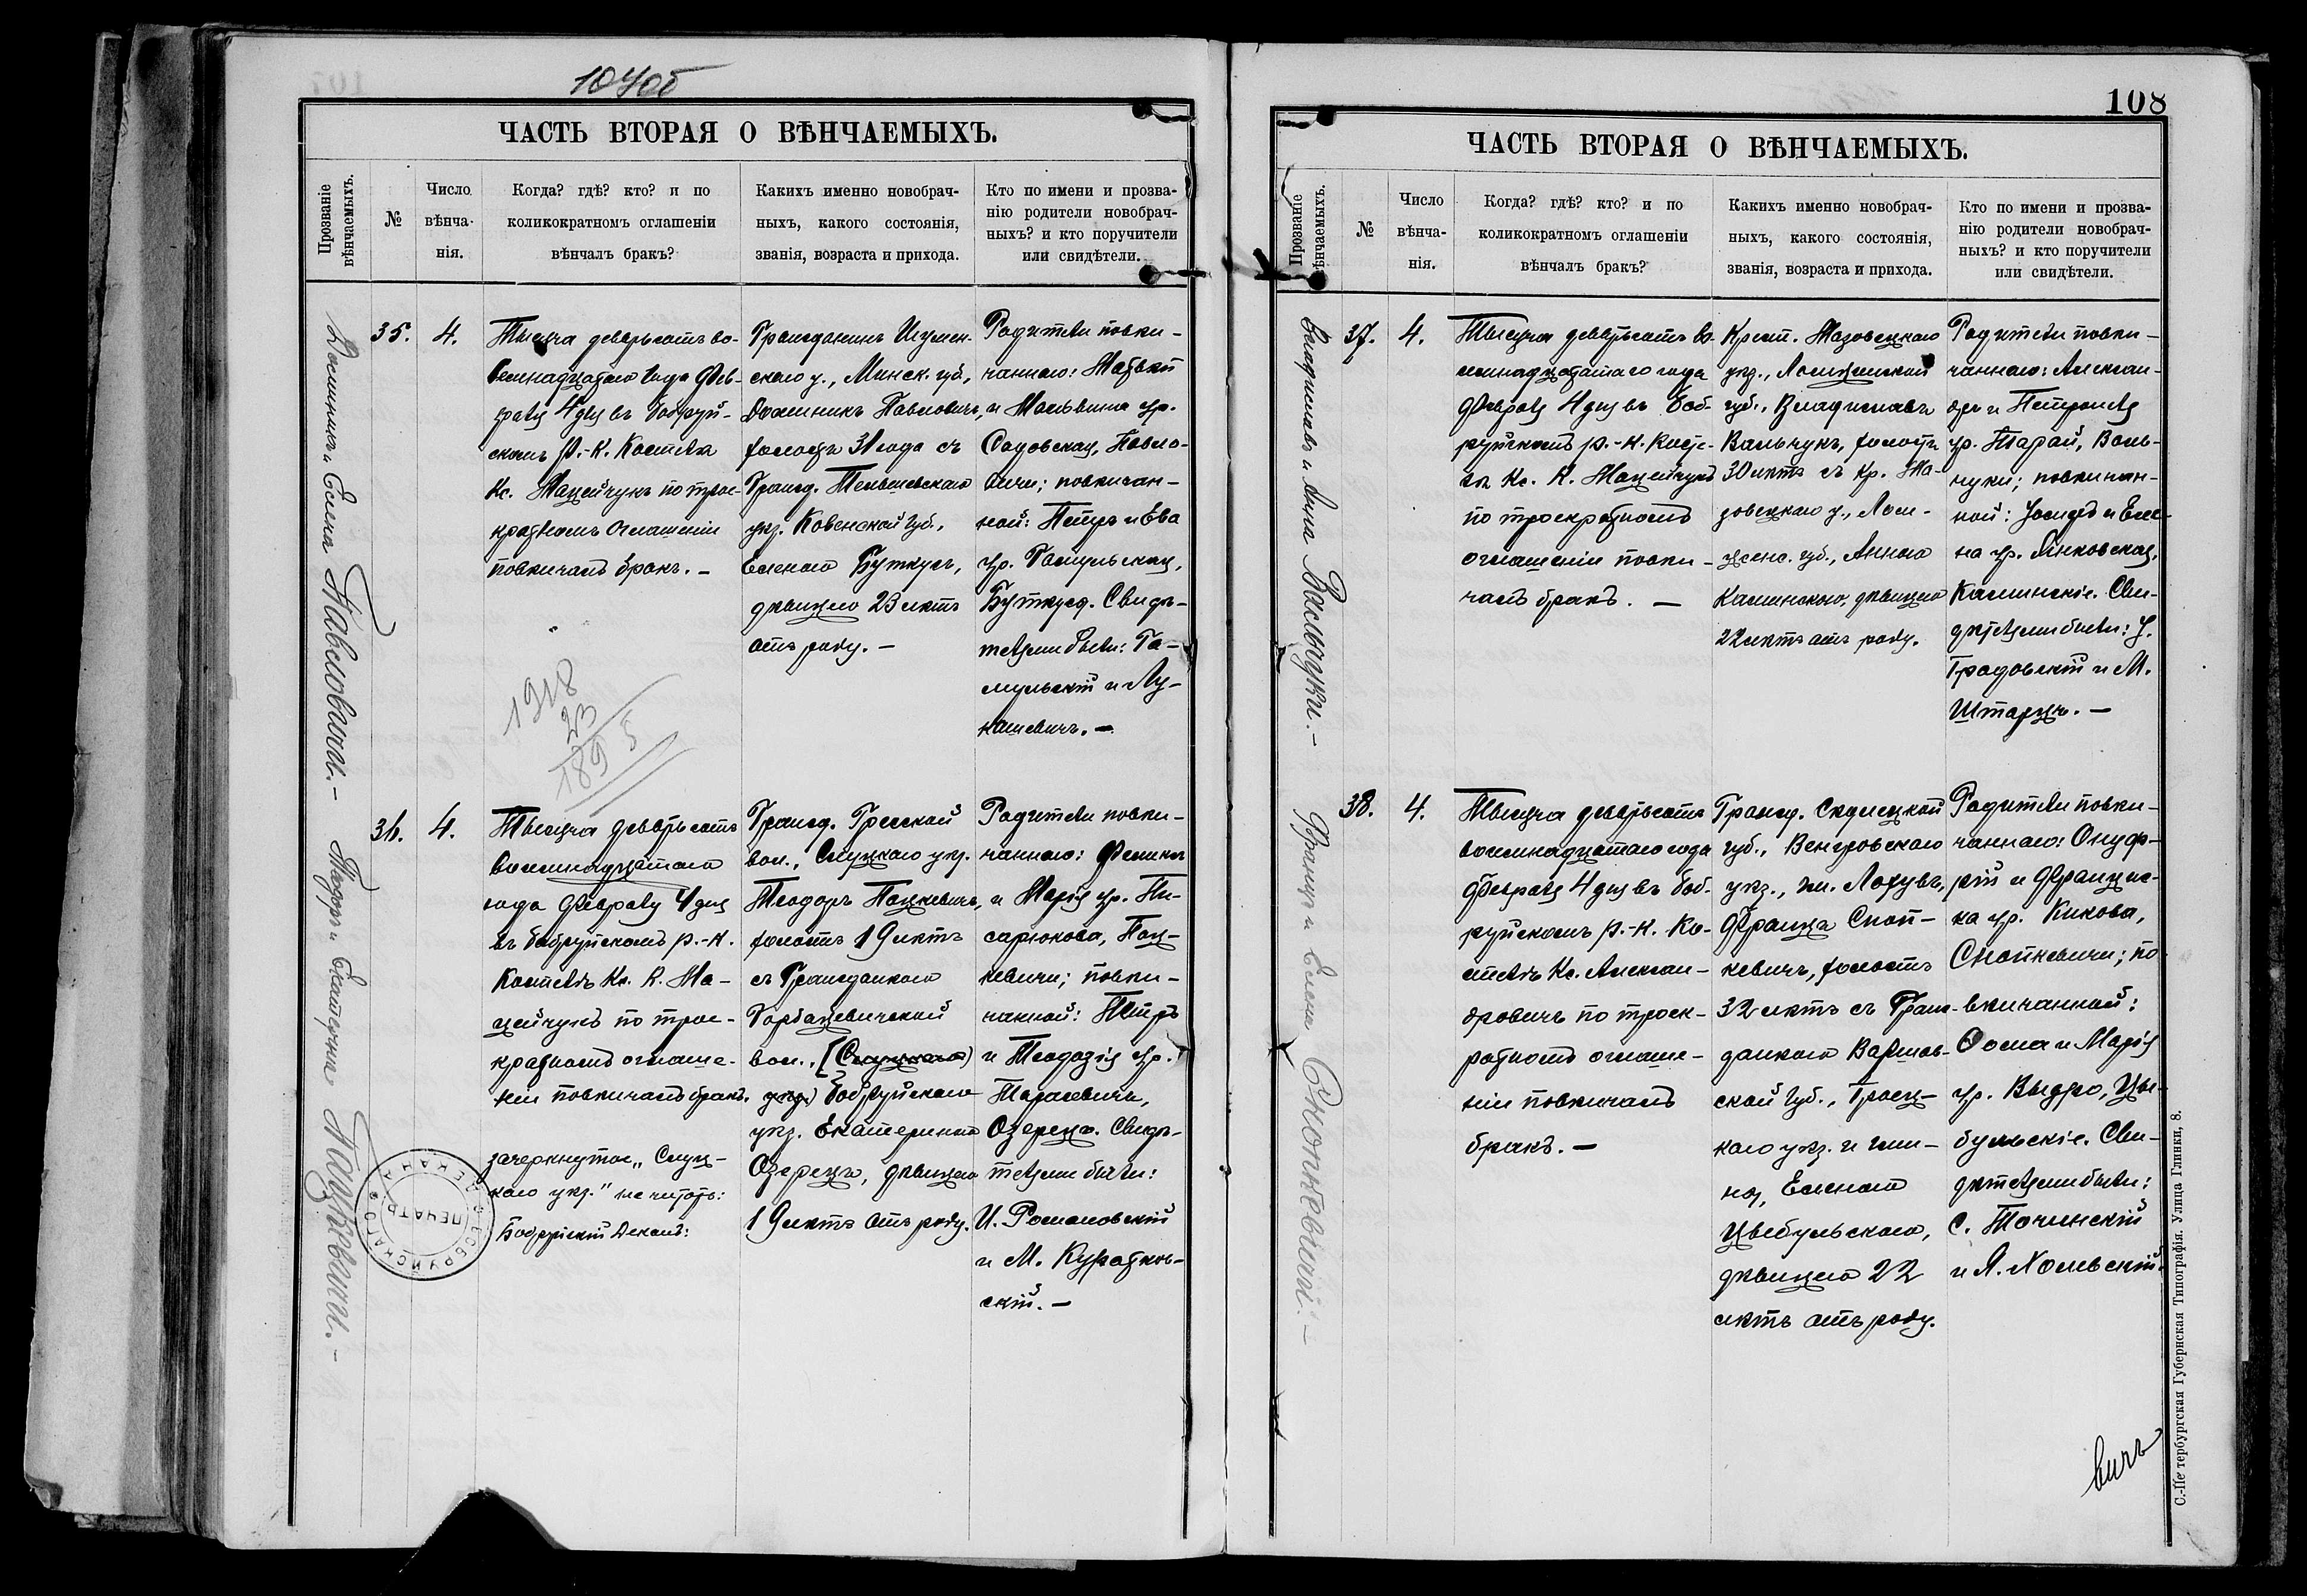 107об
ЧАСТЬ ВТОРАЯ О ВѢНЧАЕМЫХЪ.
Прозваніе
вѣнчаемыхъ.
№
Число
вѣнча-
нія.
Когда? гдѣ? кто? и по
коликократномъ оглашеніи
вѣнчалъ бракъ?
Какихъ именно новобрач-
ныхъ, какого состоянія,
званія, возраста и прихода.
Кто по имени и прозва-
нію родители новобрач-
ныхъ? и кто поручители
или свидѣтели.
Доминикъ и Елена Павловичи. –
35.
4.
Тысяча девятьсотъ во-
семнадцатаго года Фев-
раля 4 дня въ Бобруй-
скомъ Р.-К. Костелѣ
Кс. Мацейчукъ по трое-
кратномъ оглашеніи
повѣнчалъ бракъ. –
Гражданинъ Игумен-
скаго у., Минск. губ.,
Доминикъ Павловичъ,
холостъ 31 года съ
Гражд. Тельшевскаго
уѣз. Ковенской губ.,
Еленою Буткусъ,
дѣвицею 23 лѣтъ
отъ роду. –
Родители повѣн-
чаннаго: Матвѣй
и Мальвина ур.
Садовская, Павло-
вичи; повѣнчан-
ной: Петръ и Ева
ур. Гамульская,
Буткусъ. Свидѣ-
телями были: Га-
мульскій и Лу-
кашевичъ. –
1918
23
1895
Теодоръ и Екатерина Пацкевичи. –
36.
4.
Тысяча девятьсотъ
восемнадцатаго
года Февраля 4 дня
въ Бобруйскомъ Р.-К.
Костелѣ Кс. К. Ма-
цейчукъ по трое-
кратномъ оглаше-
ніи повѣнчалъ бракъ.
зачеркнутое „Слуц-
каго уѣз." не читать:
Бобруйскій Деканъ:
ПЕЧАТЬ БОБРУЙСКАГО ДЕКАНА
Гражд. Гресской
вол., Слуцкаго уѣз.
Теодоръ Пацкевичъ,
холостъ 19 лѣтъ
съ Гражданкою
Горбацевичской
вол., (Слуцкаго
уѣз.) Бобруйскаго
уѣз. Екатериною
Озерецъ, дѣвицею
19 лѣтъ отъ роду.
Родители повѣн-
чаннаго:
и Марія ур. Пи-
сарюкова, Пац-
кевичи; повѣн-
чанной: Петръ
и Теодозія ур.
Тарасевичъ,
Озерецъ. Свидѣ-
телями были:
И. Романовскій
и М. Куратков-
скій. –
108
ЧАСТЬ ВТОРАЯ О ВѢНЧАЕМЫХЪ.
Прозваніе
вѣнчаемыхъ.
№
Число
вѣнча-
нія.
Когда? гдѣ? кто? и по
коликократномъ оглашеніи
вѣнчалъ бракъ?
Какихъ именно новобрач-
ныхъ, какого состоянія,
званія, возраста и прихода.
Кто по имени и прозва-
нію родители новобрач-
ныхъ? и кто поручители
или свидѣтели.
Владиславъ и Анна Вальчуки. –
37.
4.
Тысяча девятьсотъ во-
семнадцатаго года
Февраля 4 дня въ Боб-
руйскомъ Р.-К. Косте-
лѣ Кс. К. Мацейчукъ
по троекратномъ
оглашеніи повѣн-
чалъ бракъ. –
Крест. Мазовецкаго
уѣз., Ломжинской
губ., Владиславъ
Вальчукъ, холостъ
30 лѣтъ съ кр. Ма-
зовецкаго у., Лом-
жинс. губ., Анною
Каминскою, дѣвицею
22 лѣтъ отъ роду.
Родители повѣн-
чаннаго: Алексан-
дръ и Петронеля
ур. Тарай, Валь-
чуки; повѣнчан-
ной: Іосифъ и Еле-
на ур. Линковская,
Каминскіе. Сви-
дѣтелями были: І.
Градовскій и М.
Штарцъ. –
Францъ и Елена Снопкевичи. –
38.
4.
Тысяча девятьсотъ
восемнадцатаго года
Февраля 4 дня въ Боб-
руйскомъ Р.-К. Ко-
стелѣ Кс. Алексан-
дровичъ по троек-
ратномъ оглаше-
ніи повѣнчалъ
бракъ. –
Гражд. Сѣдлецкой
губ., Венгровскаго
уѣз., гм. Лохувъ,
Францъ Сноп-
кевичъ, холостъ
32 лѣтъ съ Граж-
данкою Варшав-
ской губ., Гроец-
каго уѣз. и гми-
ны, Еленою
Цыбульскою,
дѣвицею 22
лѣтъ отъ роду.
Родители повѣн-
чаннаго: Онуф-
рій и Францис-
ка ур. Кикова,
Снопкевичи; по-
вѣнчанной:
Ѳома и Марія
ур. Выдро, Цы-
бульскіе. Сви-
дѣтелями были:
С. Точинскій
и А. Хоме­вскій.
вичъ
С.-Петербургская Губернская Типографія. Улица Глинки, 8.